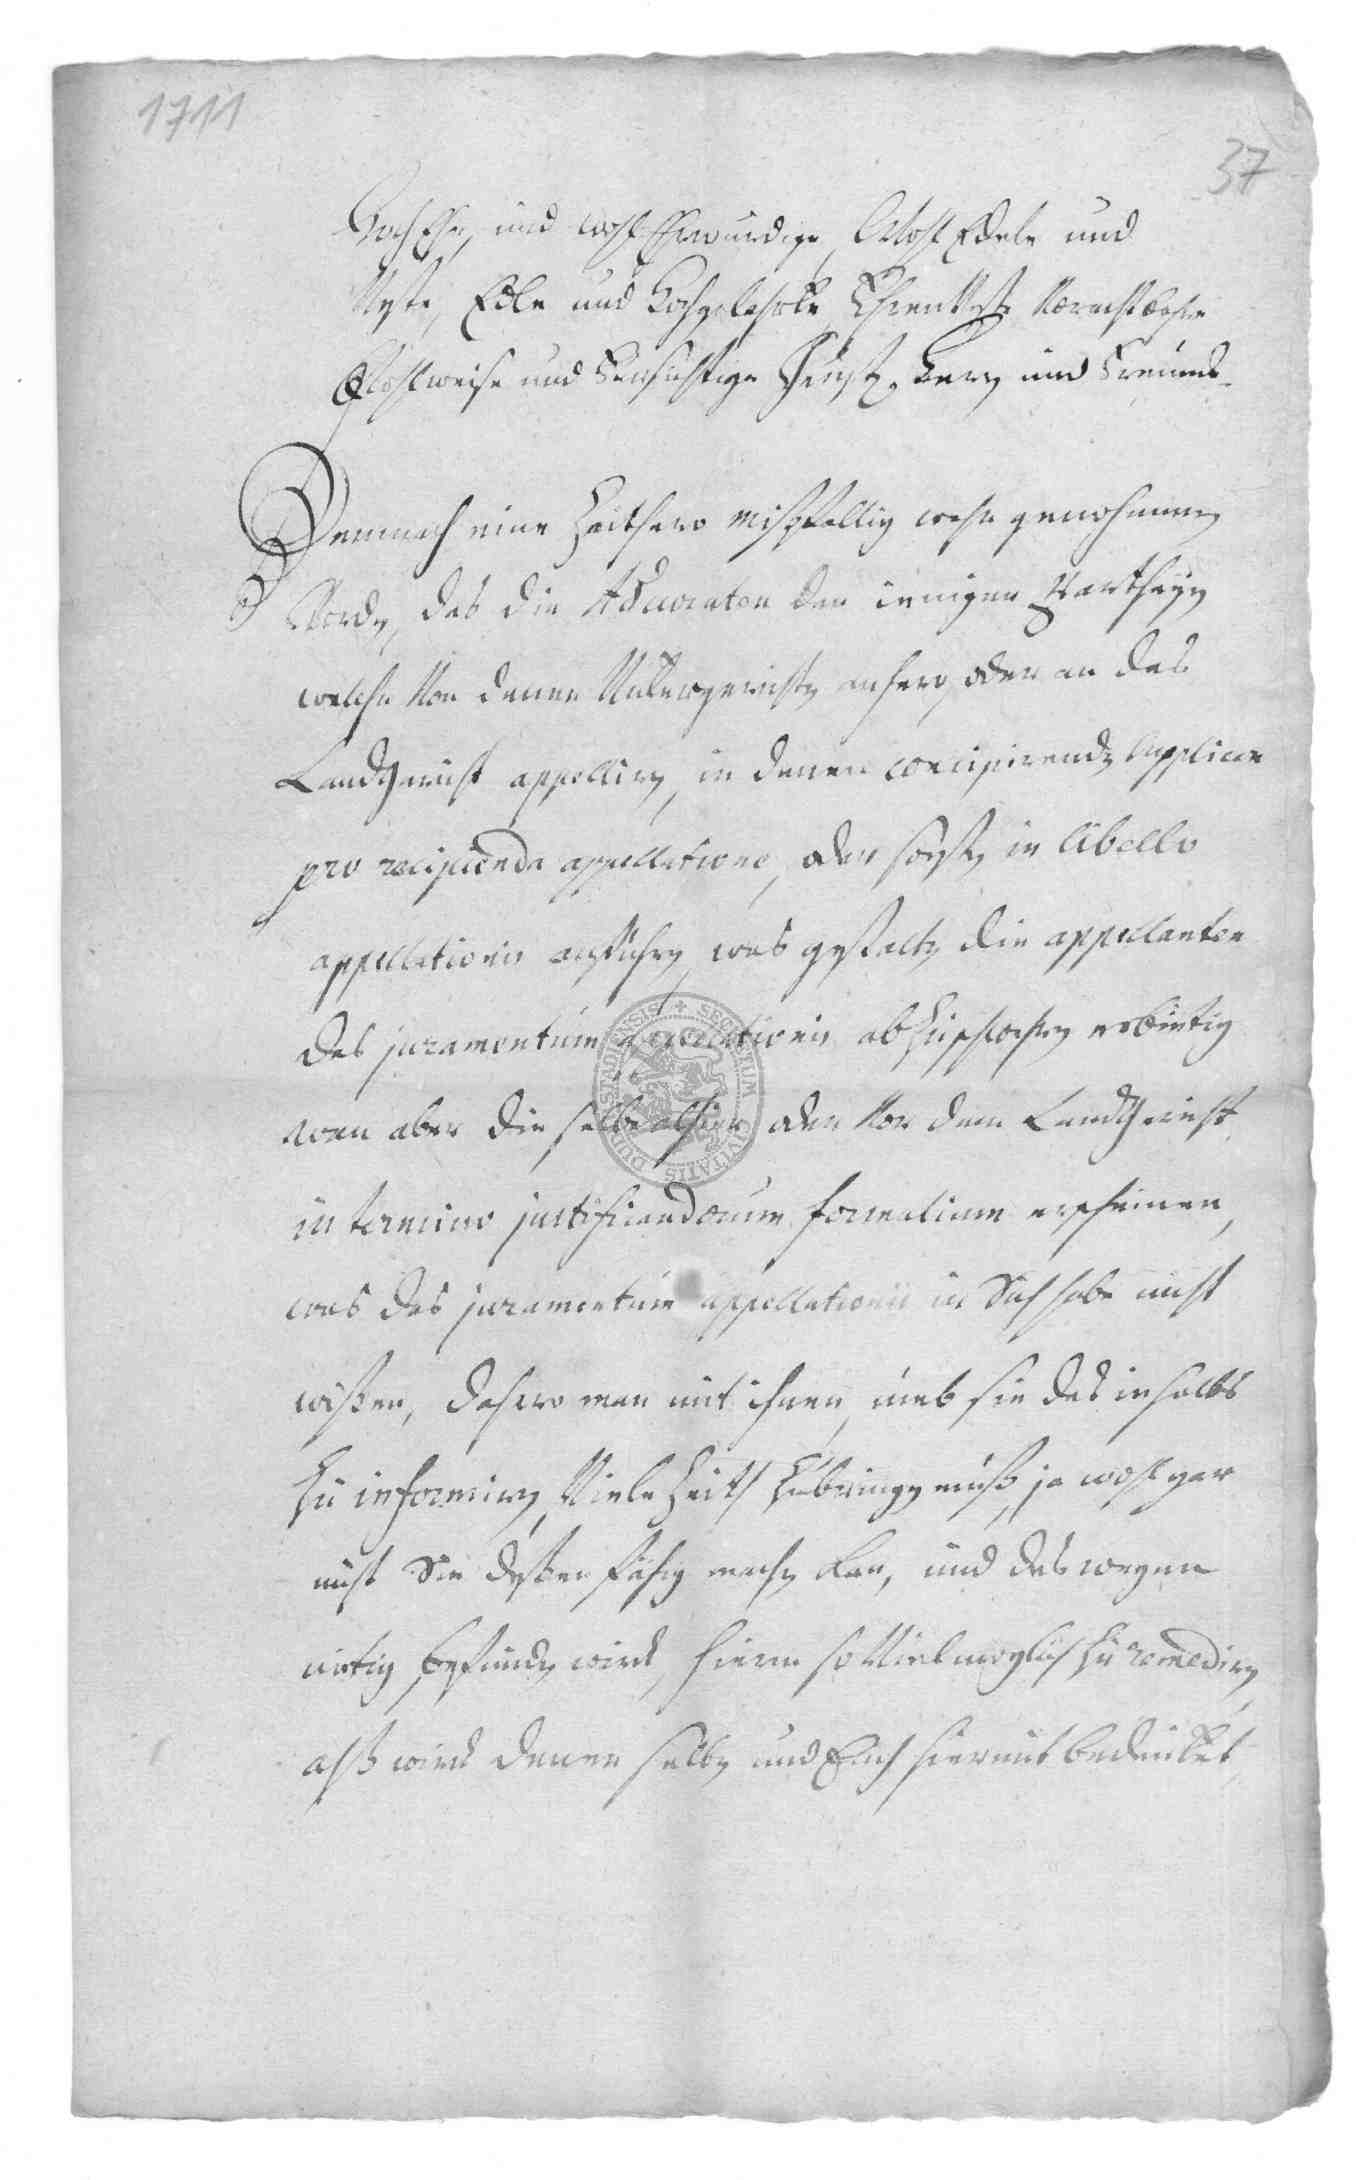 1711
37
HochEhr, und wohl Ehrwürdige, Wohl Edele und
Veste, Edle und Hochgelahrte, Ehren Veste Vornehm
Wohlweise und Vorsichtige Günst. Herrn und Freunde.
Demnach eine Zeithero mißfellig wahr genohmmen
Word, das die Advocaten der ienigen Partheyen
welche Von denen Untergerichten anhero, oder an das
Landtgericht appelliren, in denen concipirenden Supplicen
pro recipienda appellatione, oder sonsten in libello
appellationis anführen, was gestalten die appellanten
das juramentum appellationis abzuschwehren erbietig
wan aber dieselbe alhier oder Vor dem Landtgericht
in termino justificandorum formalium erscheinen,
was das juramentum appellationis in Sich habe nicht
wißen, dahero man mit ihnen, umb sie des inhalts
zu informiren Viele Zeit zubringen muß, ja wohl gar
nicht Sie deßen fähig machen kan, und deswegen
nötig befunden wird, hierin so Viel möglich zu remediren,
alß wird denenselben und Euch hiermit bedeutet,
SECRETUM CIVITATIS DUDERSTADIENSIS